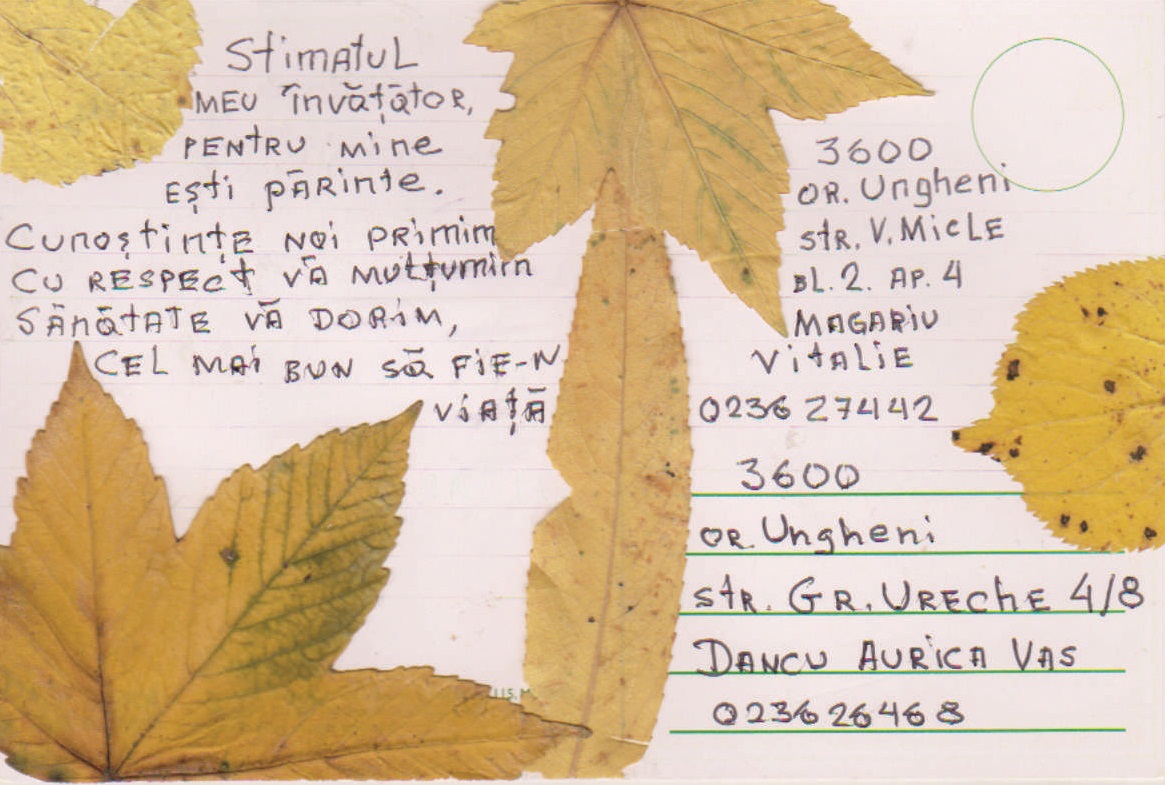 Stimatul
MEU învățător,
PENTRU mine
Ești părinte.
Cunoștințe noi primim
CU RESPECT vă mulțumim
Sănătate vă dorim,
CEL MAI BUN să FIE-N
viață
3600
OR. Ungheni
str. V. Micle
BL. 2. AP. 4
MAGARIU
Vitalie
0236 27442
3600
OR. Ungheni
str. GR. URECHE 4/8
DANCU AURICA VAS
0236 26468